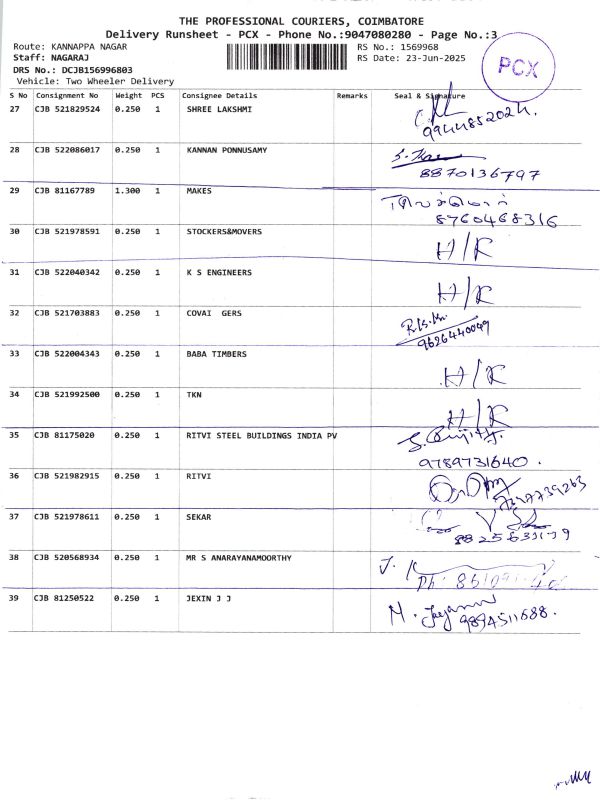 THE PROFESSIONAL COURIERS, COIMBATORE
Delivery Runsheet - PCX - Phone No.:9047080280 - Page No.:3
Route: KANNAPPA NAGAR RS No.: 1569968
Staff: NAGARAJ RS Date: 23-Jun-2025
DRS No.: DCJB156996803
Vehicle: Two Wheeler Delivery
PCX
S No Consignment No Weight PCS Consignee Details Remarks Seal & Signature
27 CJB 521829524 0.250 1 SHREE LAKSHMI
9944852024.
28 CJB 522086017 0.250 1 KANNAN PONNUSAMY
8870136797
29 CJB 81167789 1.300 1 MAKES
8760468316
30 CJB 521978591 0.250 1 STOCKERS&MOVERS H/R
31 CJB 522040342 0.250 1 K S ENGINEERS H/R
32 CJB 521703883 0.250 1 COVAI GERS
9626440049
33 CJB 522004343 0.250 1 BABA TIMBERS H/R
34 CJB 521992500 0.250 1 TKN H/R
35 CJB 81175020 0.250 1 RITVI STEEL BUILDINGS INDIA PV
9789731640.
36 CJB 521982915 0.250 1 RITVI
37 CJB 521978611 0.250 1 SEKAR
38 CJB 520568934 0.250 1 MR S ANARAYANAMOORTHY
39 CJB 81250522 0.250 1 JEXIN J J
9894511688.